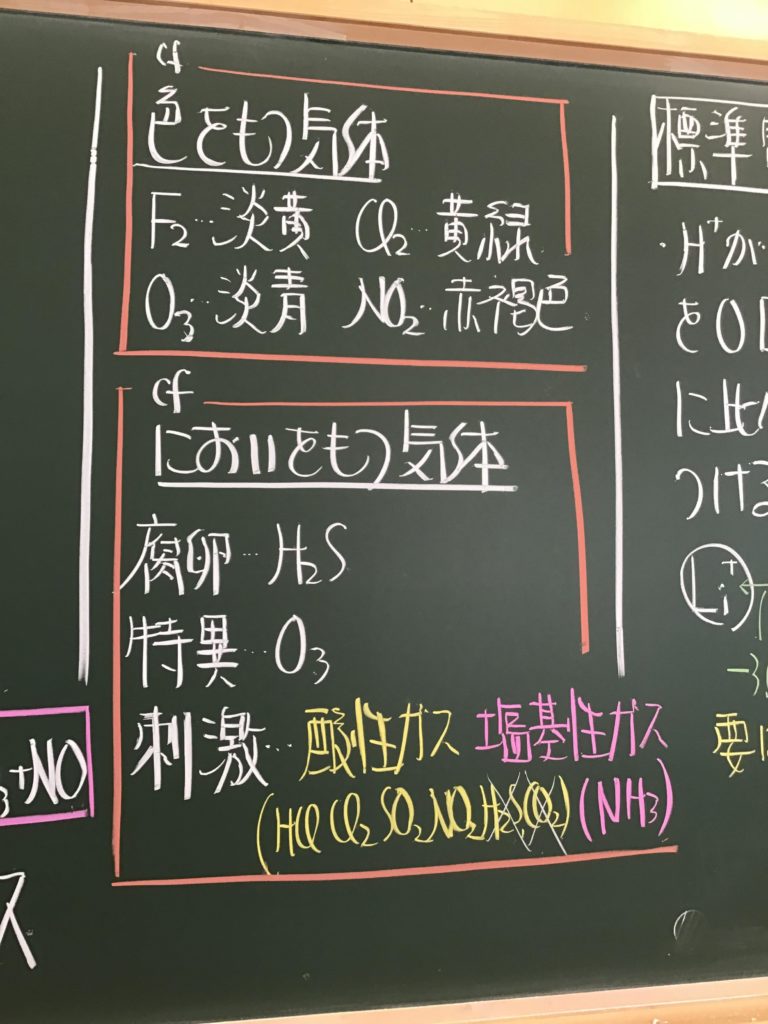 cf
色をもつ気体
F₂…淡黄 Cl₂…黄緑
O₃…淡青 NO₂…赤褐色
cf
においをもつ気体
腐卵…H₂S
特異…O₃
刺激…酸性ガス 塩基性ガス
(HCl Cl₂ SO₂ NO₂ H₂S CO₂) (NH₃)
₃+NO
ス
標準
・H⁺が
をO
に比
つける
Li⁺
-3
要